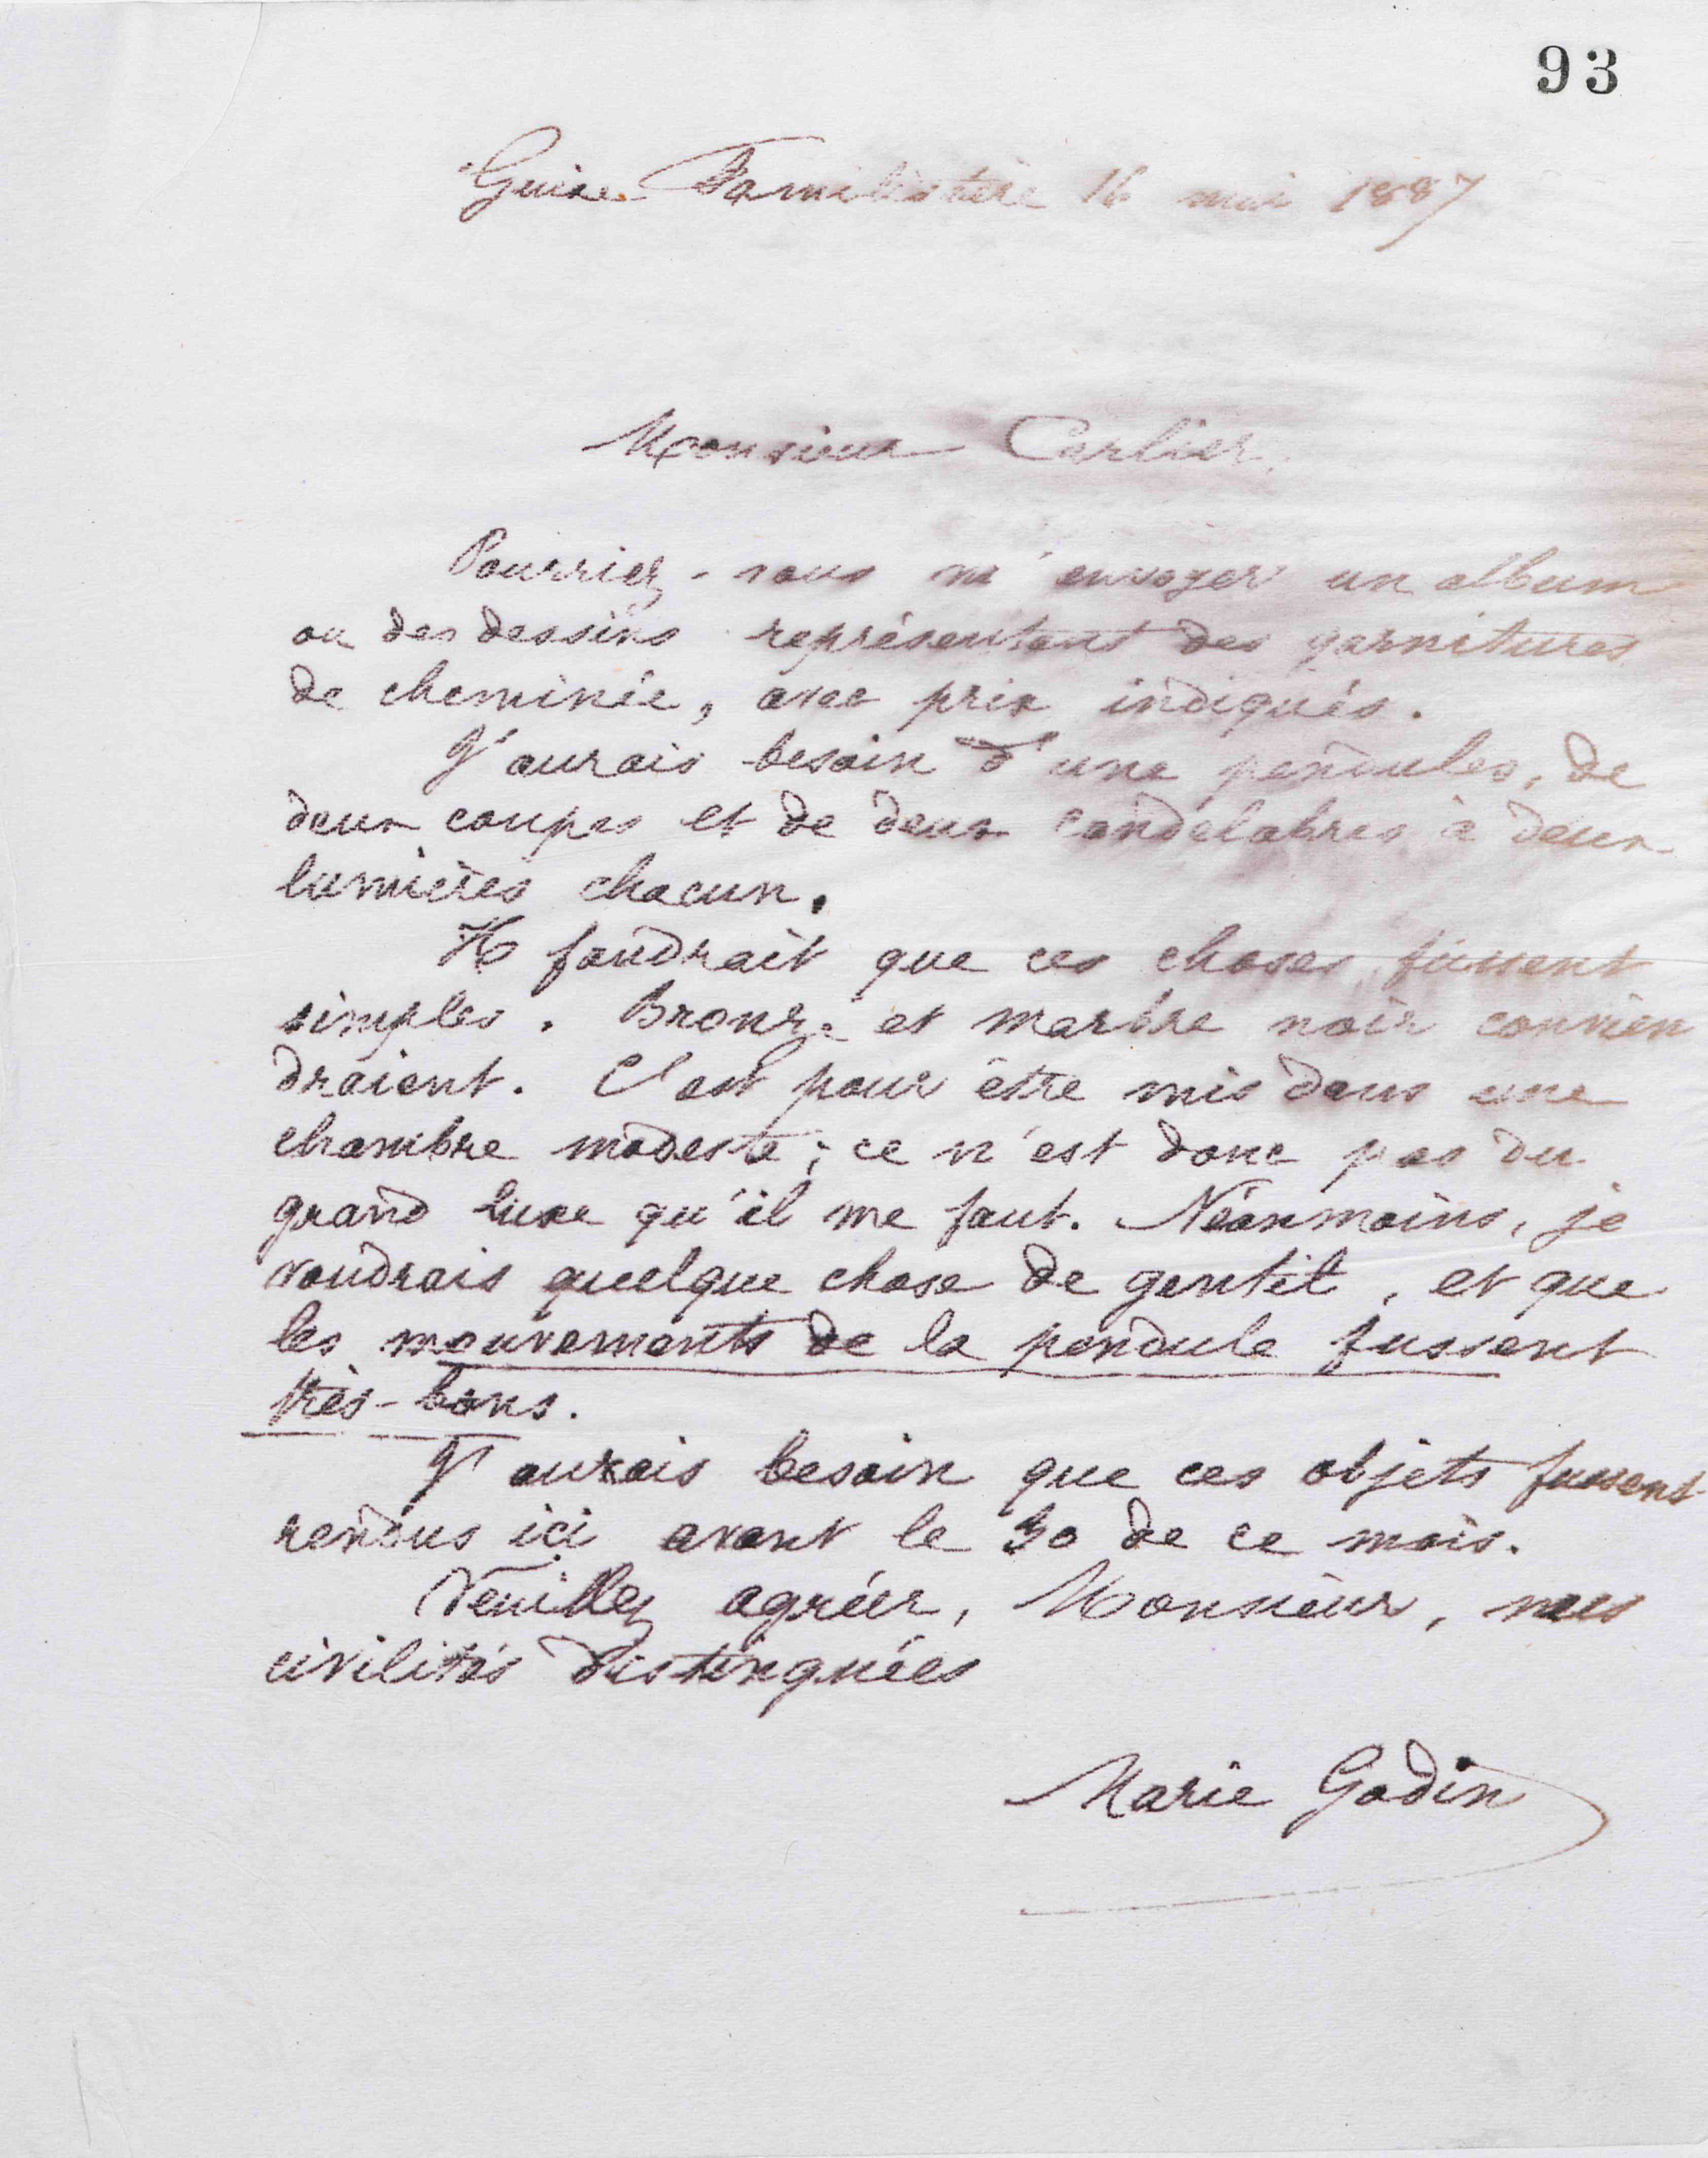 93
Guise Familistère 16 mai 1887
Monsieur Carlier,
Pourriez-vous m'envoyer un album
ou des dessins représentant des garnitures
de cheminée, avec prix indiqués.
J'aurais besoin d'une pendules, de
deux coupes et de deux candélabres à deux
lumières chacun.
Il faudrait que ces choses fussent
simples. Bronze et marbre noir convien
draient. C'est pour être mis dans une
chambre modeste; ce n'est donc pas du
grand luxe qu'il me faut. Néanmoins, je
voudrais quelque chose de gentil, et que
les mouvements de la pendule fussent
très-bons.
J'aurais besoin que ces objets fussent
rendus ici avant le 30 de ce mois.
Veuillez agréer, Monsieur, mes
civilités distinguées
Marie Godin